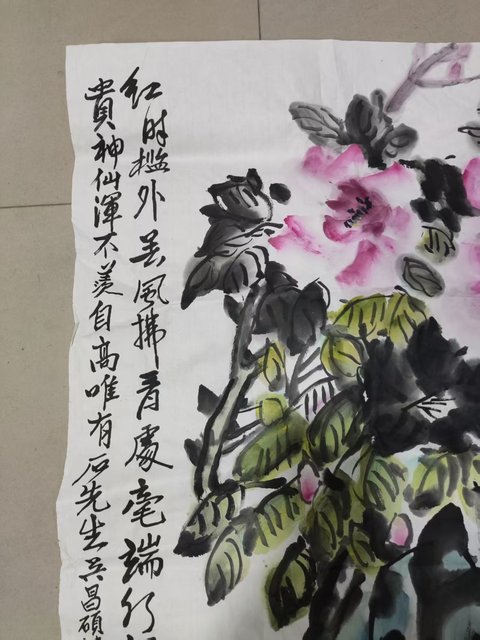 红时槛外春風拂香處毫端行
貴神仙渾不羡自高唯有石先生吴昌碩